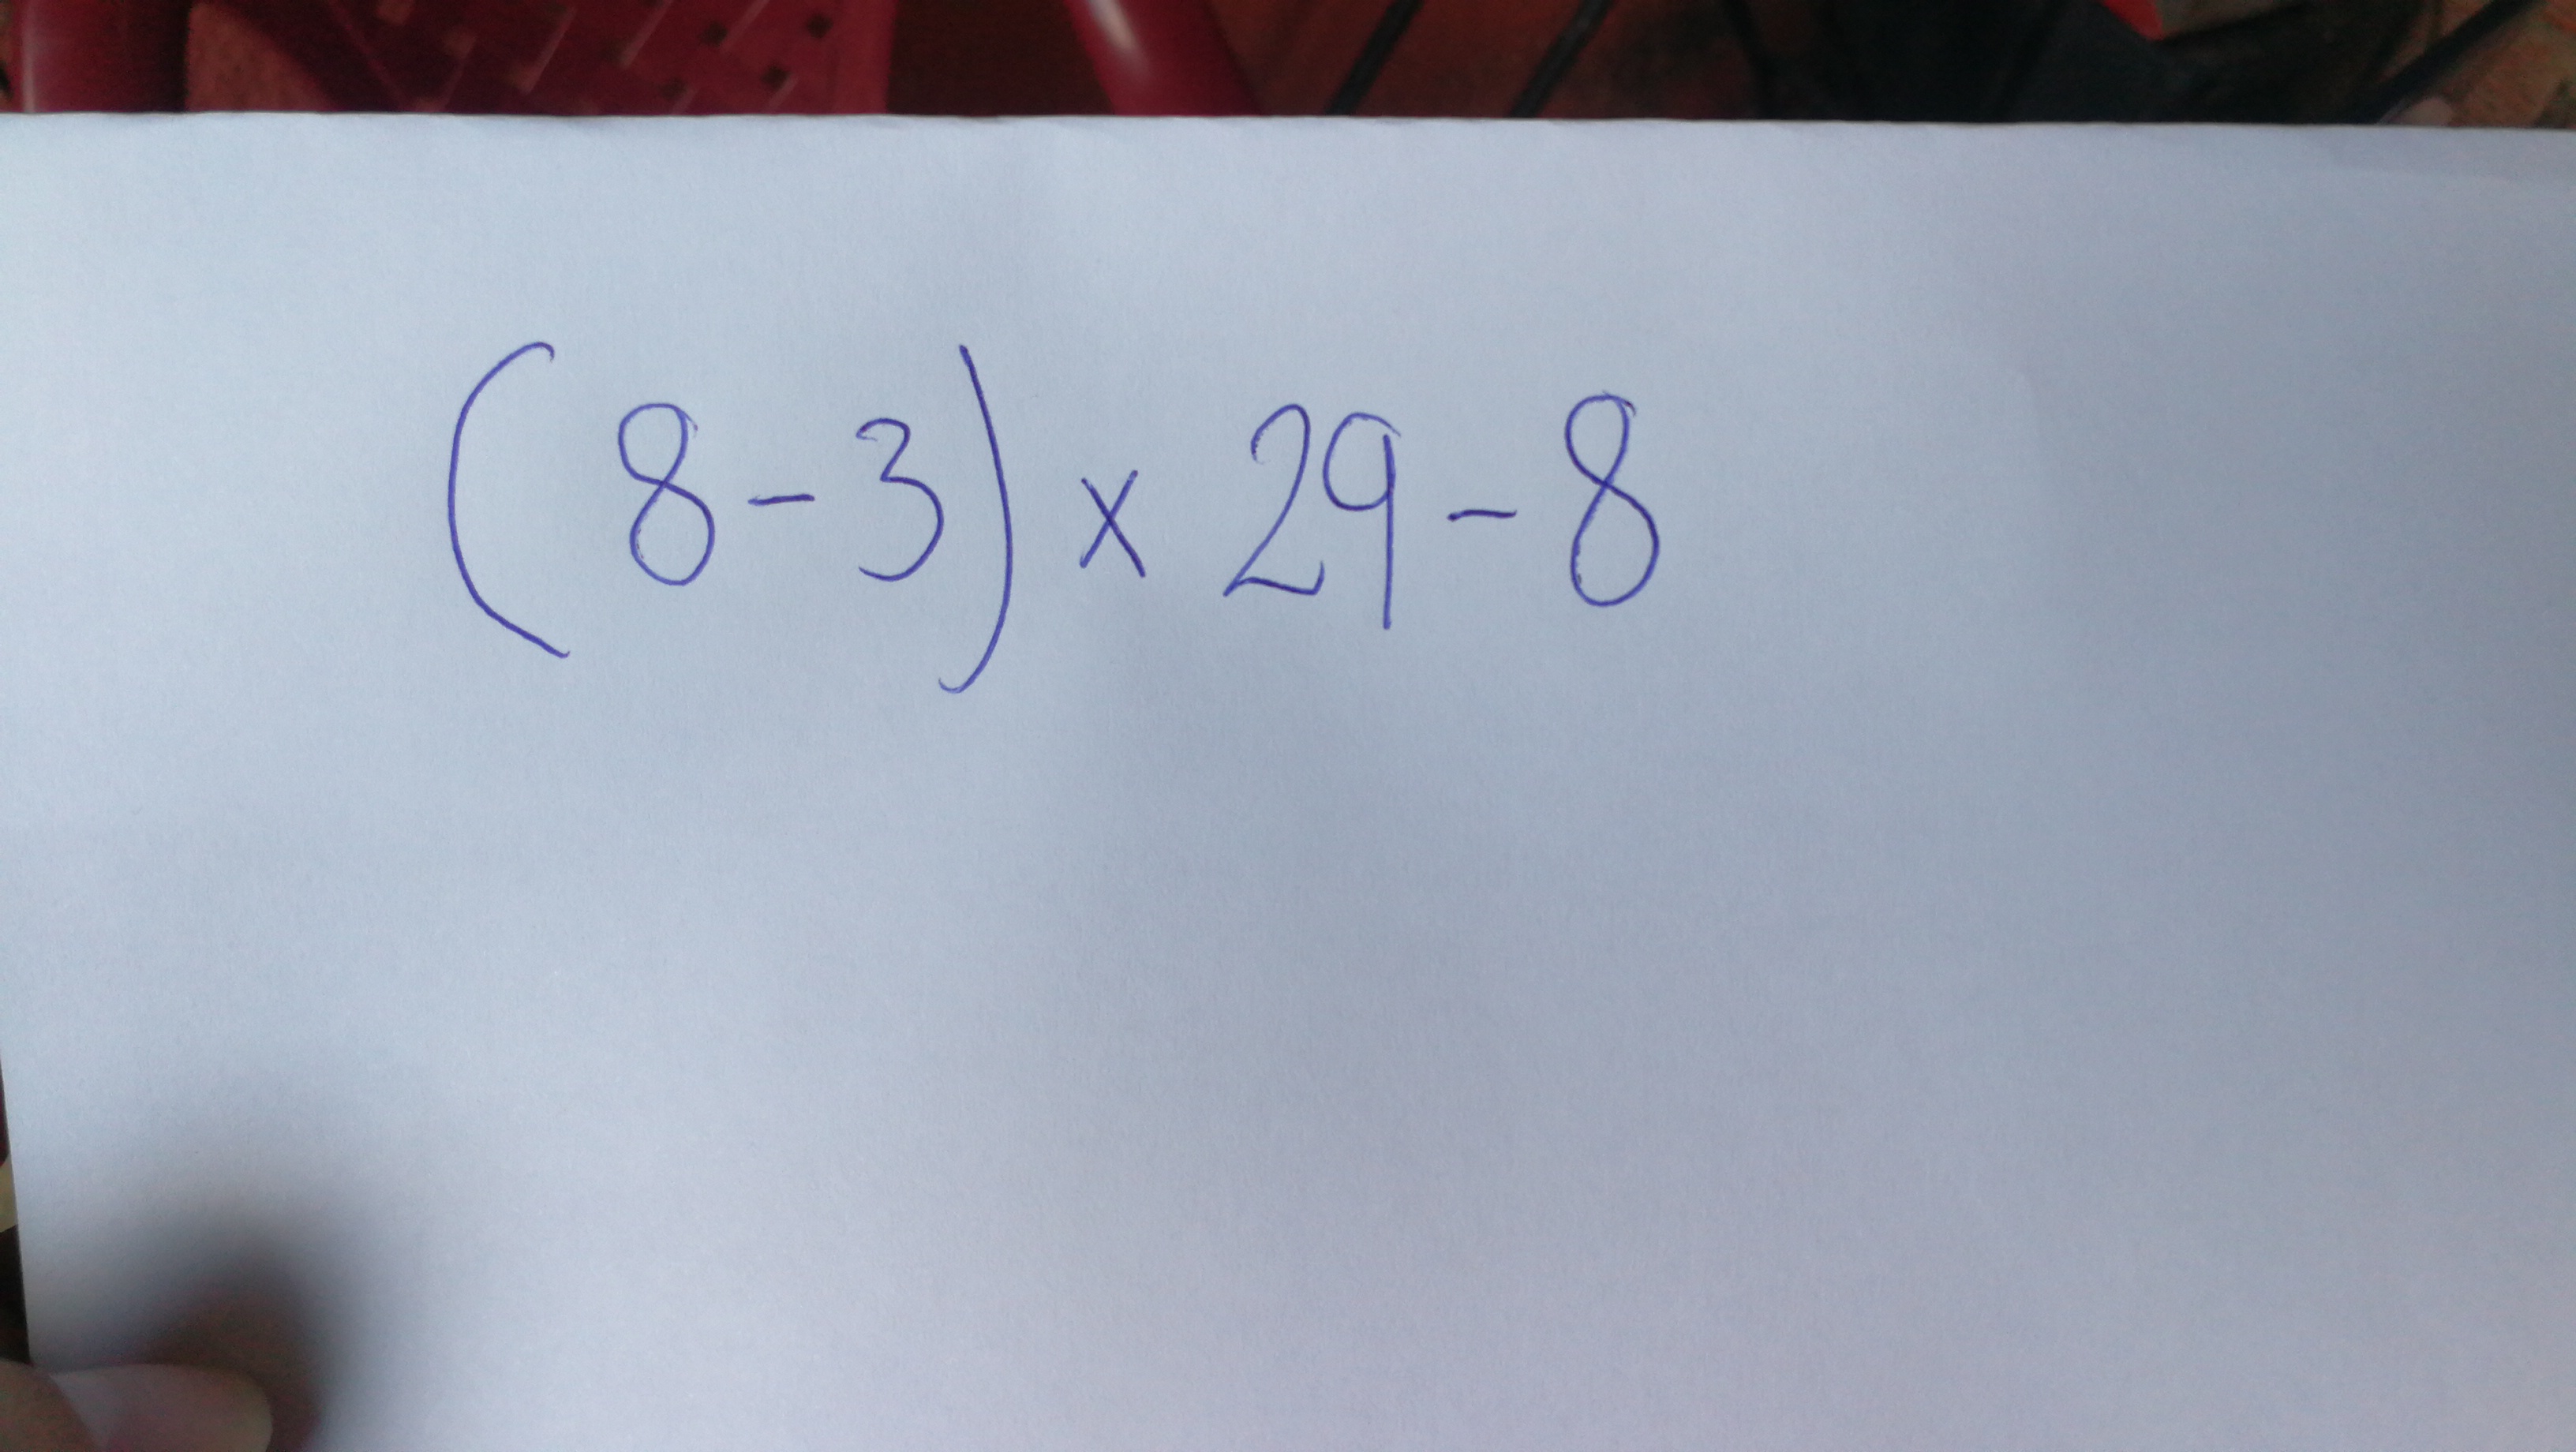 (8-3) × 29-8